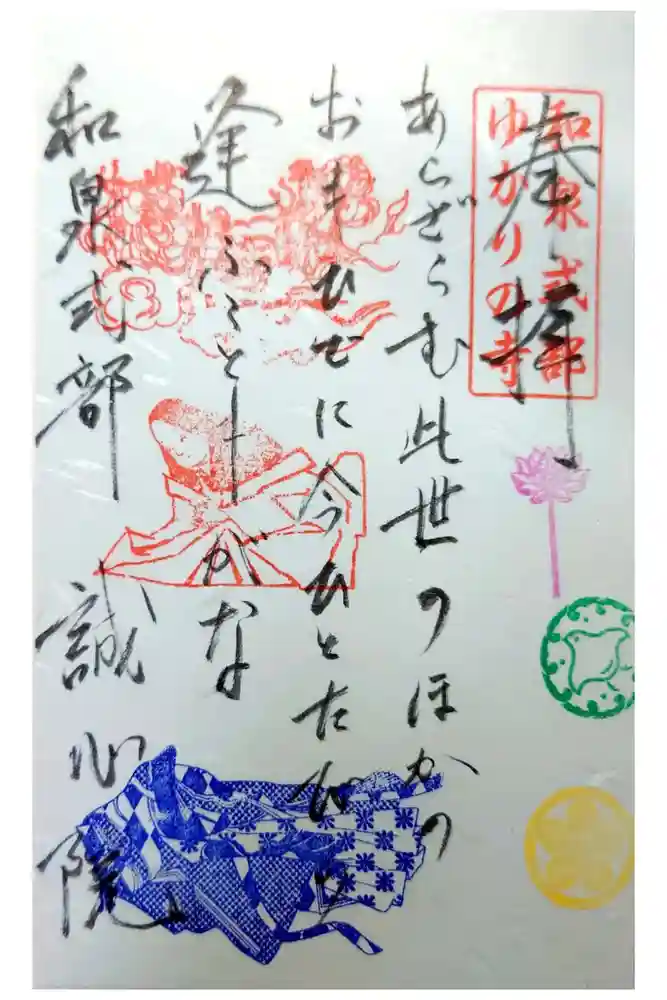 奉拝
和泉式部
ゆかりの寺
あらざらむ此世のほかの
おもひでに今ひとたびの
逢ふことしがな
和泉式部 誠心院